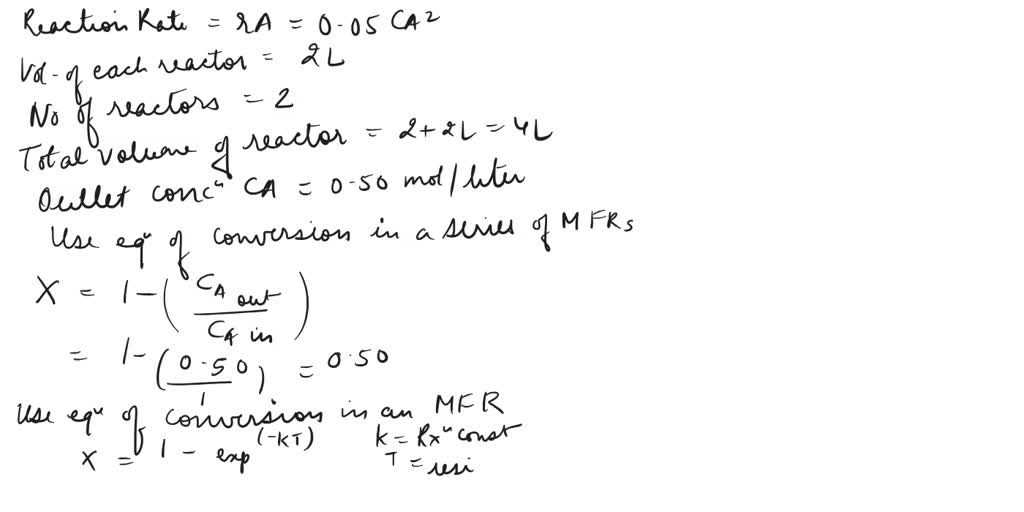 Reaction Rate = rA = 0.05 CA²
Vol. of each reactor = 2L
No of reactors = 2
Total volume of reactor = 2+2L = 4L
Outlet concⁿ CA = 0.50 mol/liter
Use eqⁿ of conversion in a series of MFRs
X = 1 - (CA out / CA in)
= 1 - (0.50 / 1) = 0.50
Use eqⁿ of conversion in an MFR
X = 1 - exp(-KT) K = Rxⁿ const
T = resi